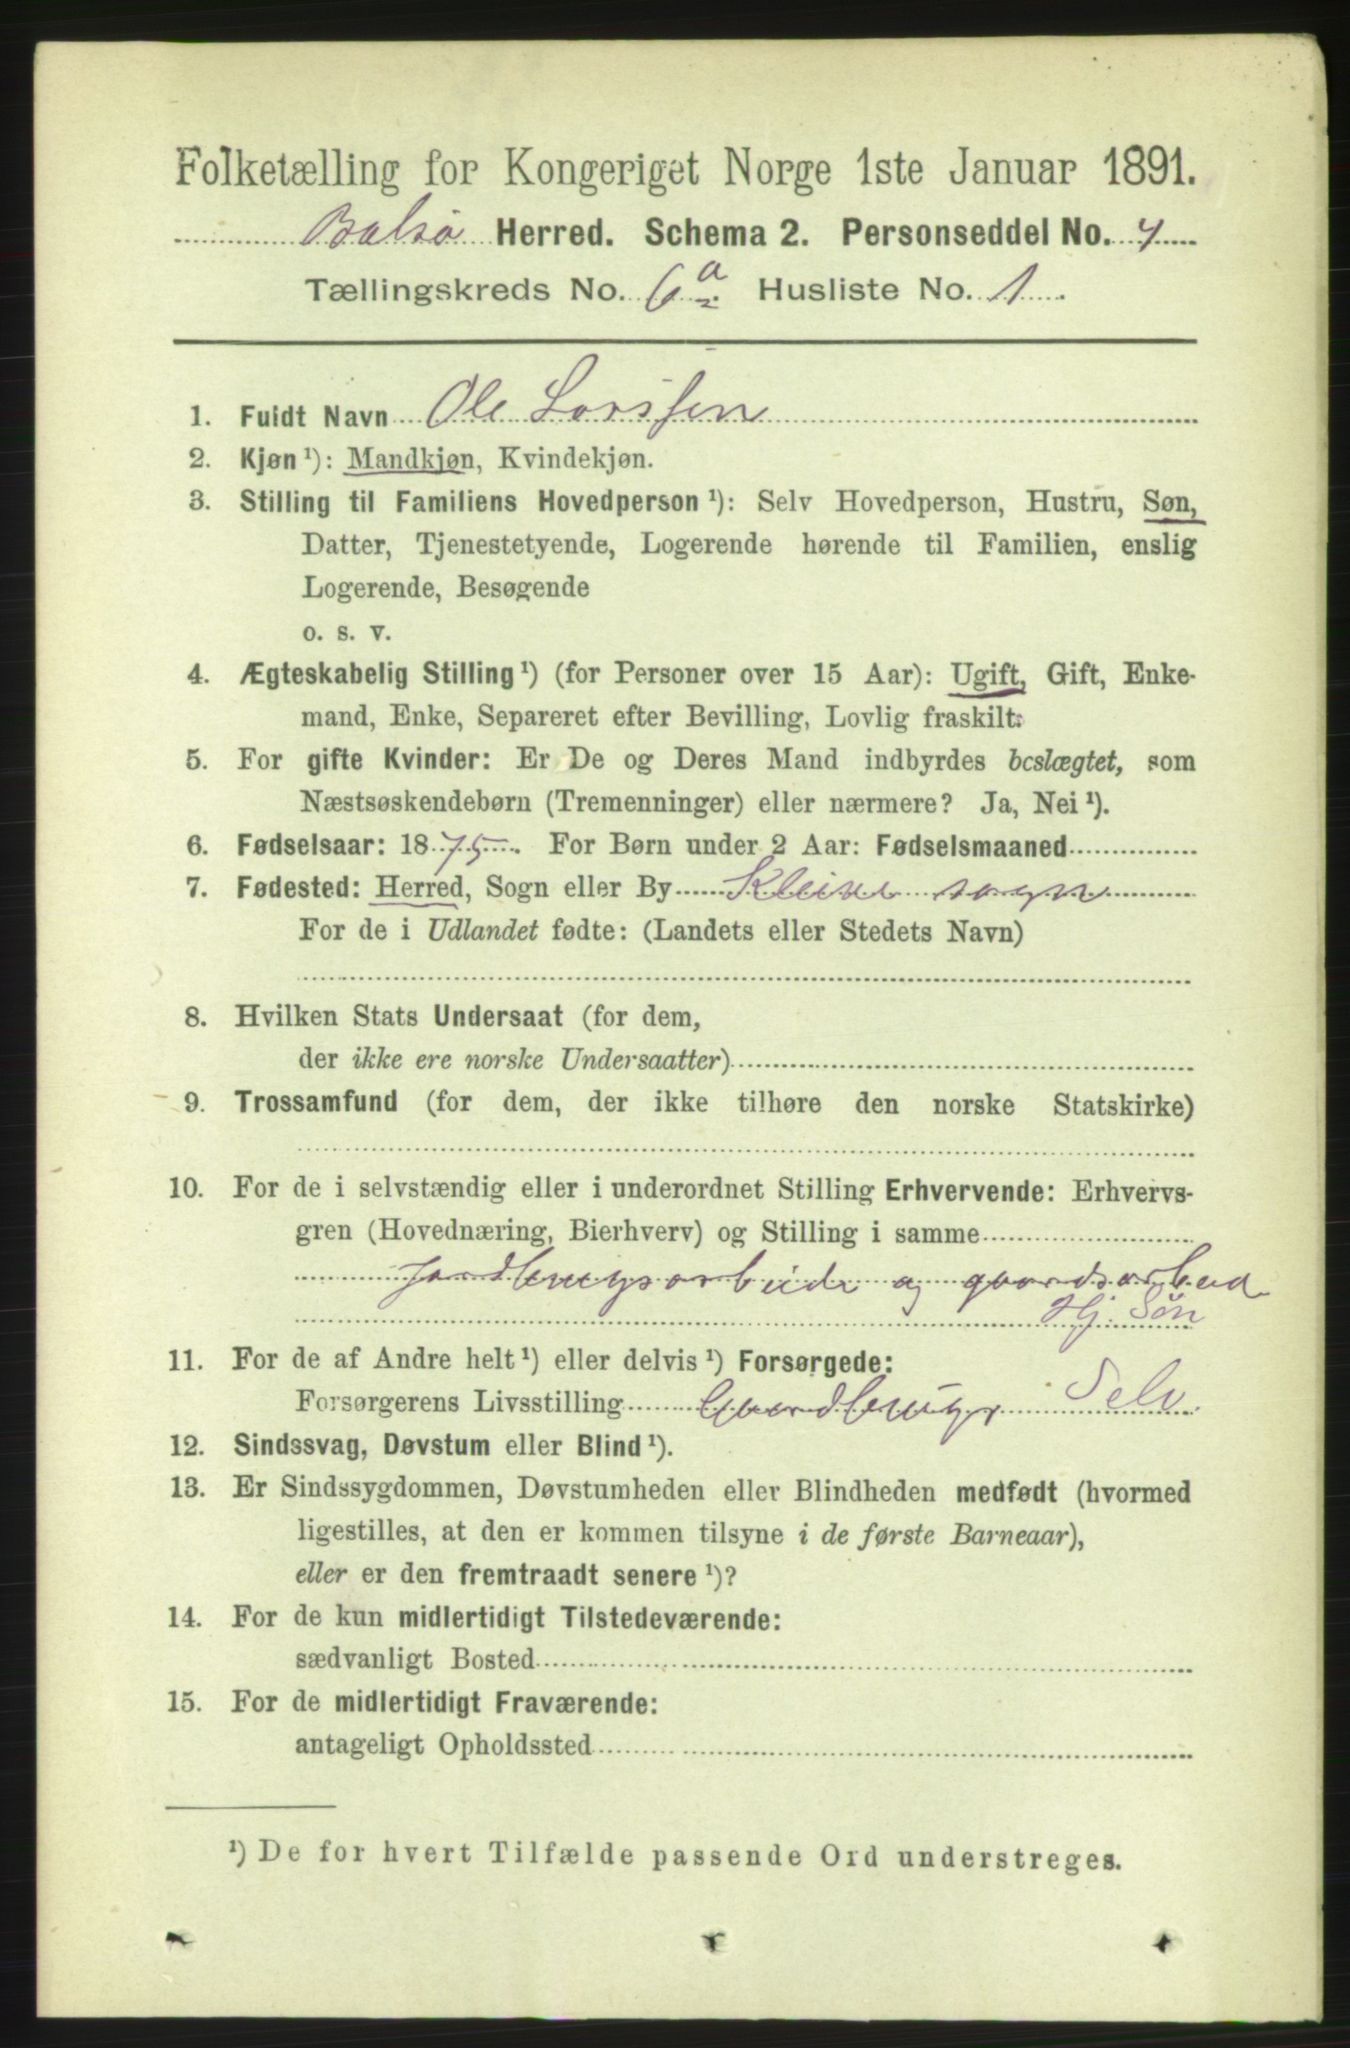 Folketælling for Kongeriget Norge 1ste Januar 1891.
Balsø Herred. Schema 2. Personseddel No. 4
Tællingskreds No. 6a Husliste No. 1
1. Fuldt Navn Ole Larssen
2. Kjøn ¹): Mandkjøn, Kvindekjøn.
3. Stilling til Familiens Hovedperson ¹): Selv Hovedperson, Hustru, Søn,
Datter, Tjenestetyende, Logerende hørende til Familien, enslig
Logerende, Besøgende
o. s. v.
4. Ægteskabelig Stilling ¹) (for Personer over 15 Aar): Ugift, Gift, Enke-
mand, Enke, Separeret efter Bevilling, Lovlig fraskilt.
5. For gifte Kvinder: Er De og Deres Mand indbyrdes beslægtet, som
Næstsøskendebørn (Tremenninger) eller nærmere? Ja, Nei ¹).
6. Fødselsaar: 1875. For Børn under 2 Aar: Fødselsmaaned
7. Fødested: Herred, Sogn eller By sogn
For de i Udlandet fødte: (Landets eller Stedets Navn)
8. Hvilken Stats Undersaat (for dem,
der ikke ere norske Undersaatter)
9. Trossamfund (for dem, der ikke tilhøre den norske Statskirke)
10. For de i selvstændig eller i underordnet Stilling Erhvervende: Erhvervs-
gren (Hovednæring, Bierhverv) og Stilling i samme
Jordbrugsarbeide og gaardsarbeid
Hj. Søn
11. For de af Andre helt ¹) eller delvis ¹) Forsørgede:
Forsørgerens Livsstilling Gaardbruger Selv
12. Sindssvag, Døvstum eller Blind ¹).
13. Er Sindssygdommen, Døvstumheden eller Blindheden medfødt (hvormed
ligestilles, at den er kommen tilsyne i de første Barneaar),
eller er den fremtraadt senere ¹)?
14. For de kun midlertidigt Tilstedeværende:
sædvanligt Bosted
15. For de midlertidigt Fraværende:
antageligt Opholdssted
¹) De for hvert Tilfælde passende Ord understreges.